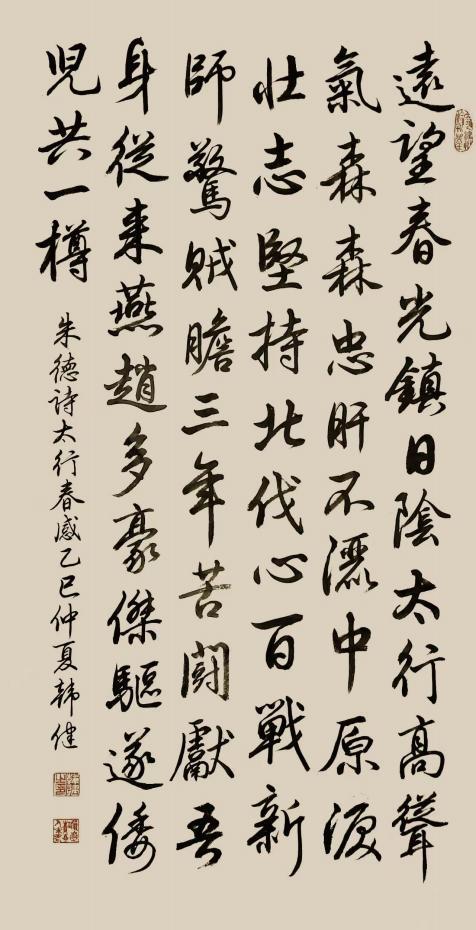 遠望春光鎮日陰太行高聳
氣森森忠肝不灑中原淚
壯志堅持北伐心百戰新
師驚賊膽三年苦鬪獻吾
身從来燕趙多豪傑驅遂倭
児共一樽
朱德诗太行春感乙巳仲夏韩健